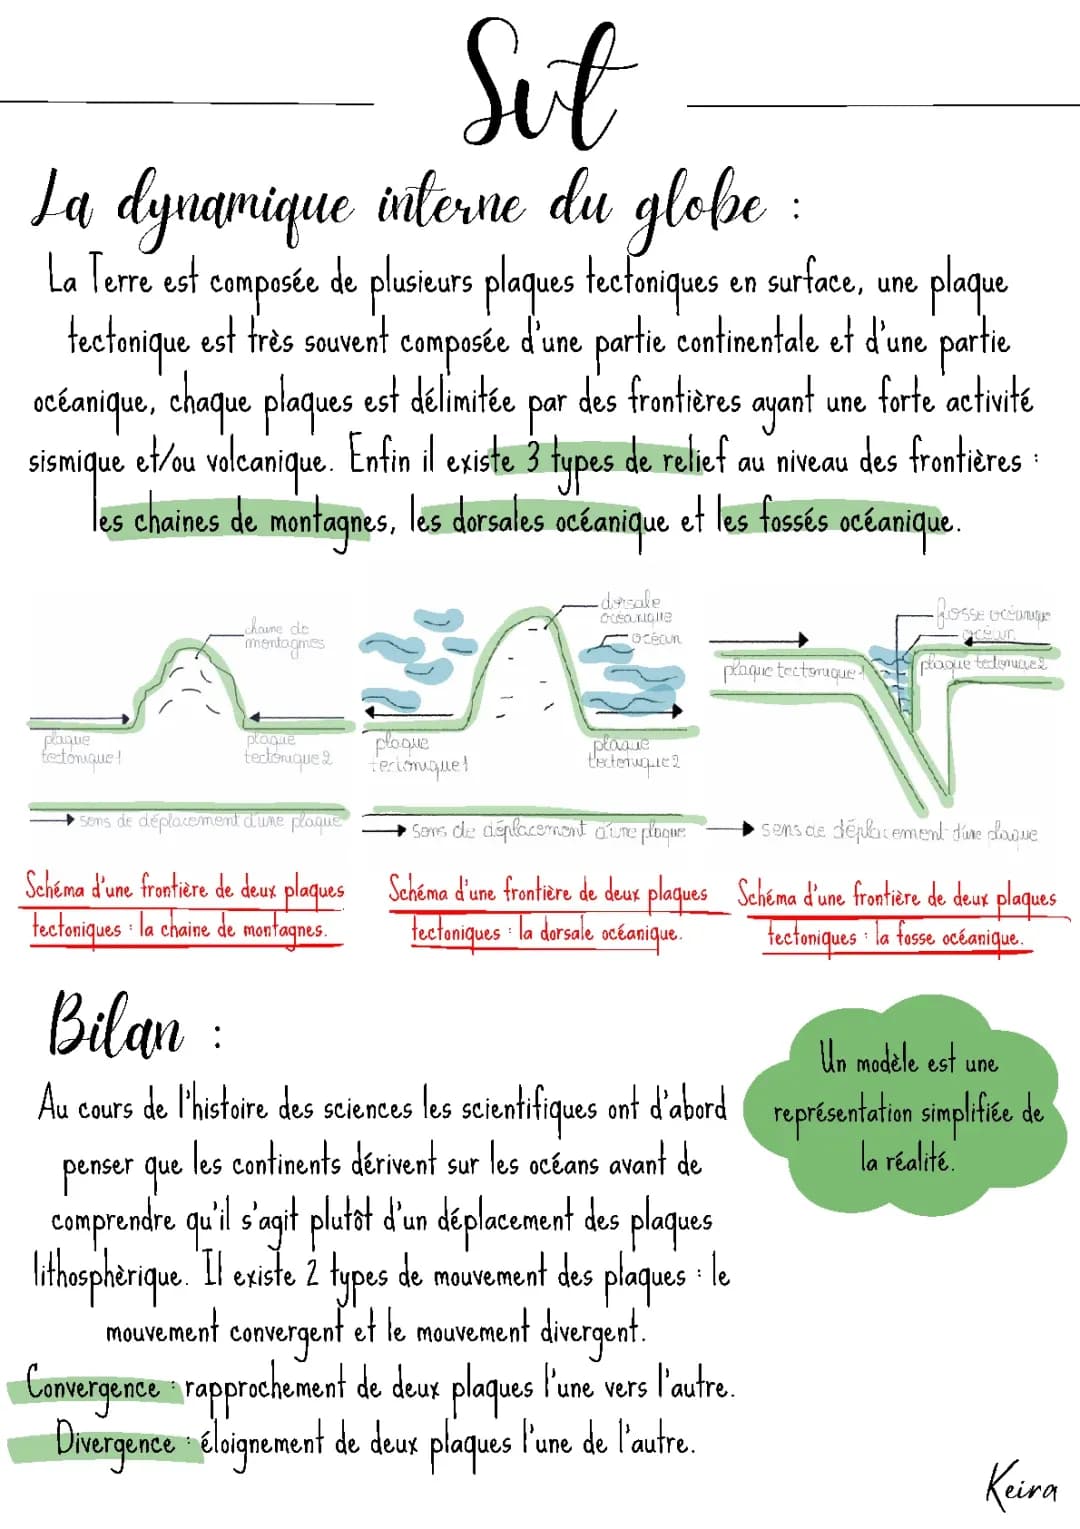 Svt
La dynamique interne du globe :
La Terre est composée de plusieurs plaques tectoniques en surface, une plaque
tectonique est très souvent composée d'une partie continentale et d'une partie
océanique, chaque plaques est délimitée par des frontières ayant une forte activité
sismique et/ou volcanique. Enfin il existe 3 types de relief au niveau des frontières :
les chaines de montagnes, les dorsales océanique et les fossés océanique.
chaine de
montagnes
plaque
tectonique 1
plaque
tectonique 2
sens de déplacement d'une plaque
Schéma d'une frontière de deux plaques
tectoniques : la chaine de montagnes.
dorsale
océanique
océan
plaque
tectonique 1
plaque
tectonique 2
sens de déplacement d'une plaque
Schéma d'une frontière de deux plaques
tectoniques : la dorsale océanique.
fosse océanique
océan
plaque tectonique 1
plaque tectonique 2
sens de déplacement d'une plaque
Schéma d'une frontière de deux plaques
tectoniques : la fosse océanique.
Bilan :
Au cours de l'histoire des sciences les scientifiques ont d'abord
penser que les continents dérivent sur les océans avant de
comprendre qu'il s'agit plutôt d'un déplacement des plaques
lithosphèrique. Il existe 2 types de mouvement des plaques : le
mouvement convergent et le mouvement divergent.
Convergence : rapprochement de deux plaques l'une vers l'autre.
Divergence : éloignement de deux plaques l'une de l'autre.
Un modèle est une
représentation simplifiée de
la réalité.
Keira